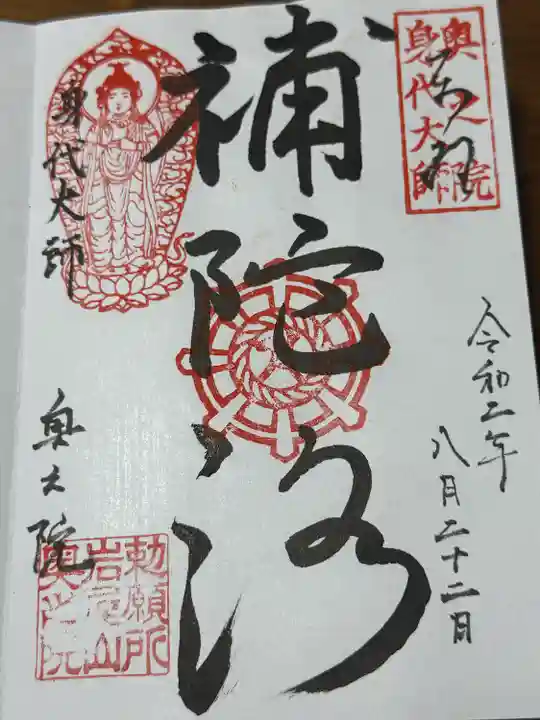 奉拝
奥之院
身代大師
令和二年
八月二十二日
補陀洛
身代大師
奥之院
勅願所
岩尾山
奥之院